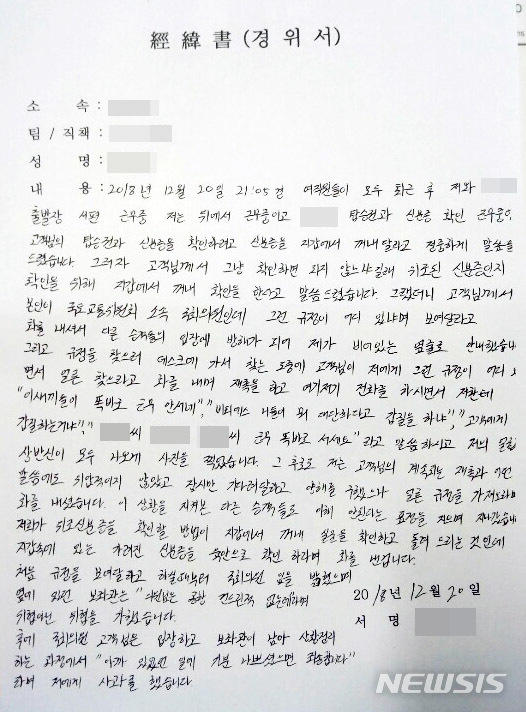 經緯書 (경위서)
소 속 :
팀 / 직책 :
성 명 :
내 용 : 2018년 12월 20일 21:05경 여직원들이 모두 퇴근 후 저와
출발장 서편 근무중 저는 뒤에서 근무중이고 탑승권과 신분증 확인 근무중에,
고객님의 탑승권과 신분증을 확인하려고 신분증을 지갑에서 꺼내달라고 정중하게 말씀을
드렸습니다. 그러자 고객님께서 그냥 확인하면 되지 않느냐길래 위조된 신분증인지
확인을 위해 지갑에서 꺼내 확인을 한다고 말씀드렸습니다. 그랬더니 고객님께서
본인이 국토교통위원회 소속 국회의원인데 그런 규정이 어디 있냐며 보여달라고
화를 내셔서 다른 승객들의 입장에 방해가 되어 제가 비어있는 옆으로 안내했습니다
그리고 규정을 찾으러 데스크에 가서 찾는 도중에 고객님이 저에게 그런 규정이 어디
면서 얼른 찾으라고 화를 내며 재촉을 하고 여기저기 전화를 하시면서 저한테
"이새끼들이 똑바로 근무 안서네", "비티에스 너들이 뭐 대단하다고 갑질을 하냐", "고객에게
갑질하는거냐", " 씨 씨 근무 똑바로 서세요" 라고 말씀하시고 저의 얼굴
상반신이 모두 나오게 사진을 찍었습니다. 그 후로도 저는 고객님의 계속되는 재촉과
말씀에도 위압적이지 않았고 잠시만 기다려달라고 양해를 구했으나 얼른 규정을 가져오라며
화를 내셨습니다. 이 상황을 지켜본 다른 승객들도 이해 안된다는 표정을 지으며 지나갔습니
저희가 위조신분증을 확인할 방법이 지갑에서 꺼내 실물을 확인하고 돌려 드리는 것인데
지갑속에 있는 가려진 신분증을 육안으로 확인 하라며 화를 냅니다.
처음 규정을 보여달라고 하실때부터 국회의원 임을 밝혔으며
옆에 있던 보좌관은 "의원님은 공항 건드린적 없는데"라며
위협아닌 위협을 가했습니다.
후에 국회의원 고객님은 입장하고 보좌관이 남아 상황정리
하는 과정에서 "아까 있었던 일에 기분 나쁘셨으면 죄송합니다"
라며 저에게 사과를 했습니다
2018년 12월 20일
서 명
NEWSIS